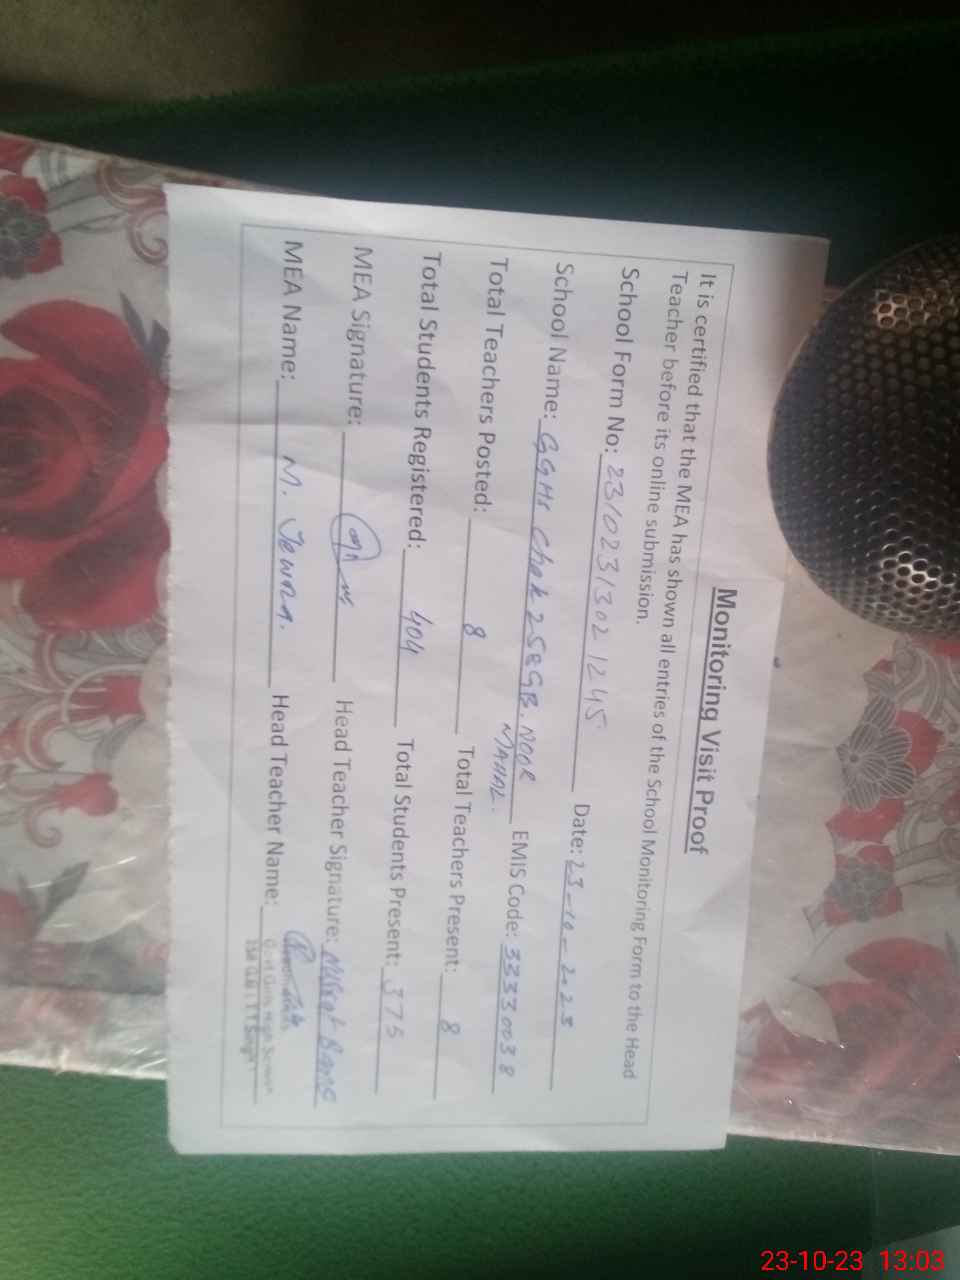 Monitoring Visit Proof
It is certified that the MEA has shown all entries of the School Monitoring Form to the Head
Teacher before its online submission.
School Form No: 23102313021245 Date: 23-10-2023
School Name: GGHS Chak 258GB. NOOR MAHAL. EMIS Code: 33330038
Total Teachers Posted: 8 Total Teachers Present: 8
Total Students Registered: 404 Total Students Present: 375
MEA Signature: Head Teacher Signature: Nusrat Bano
MEA Name: M. Head Teacher Name:
Govt Girls High School
258 G.B. T.T Singh
23-10-23 13:03